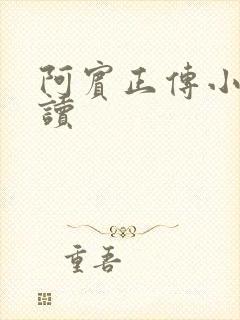 阿賓正傳小
讀
重吾